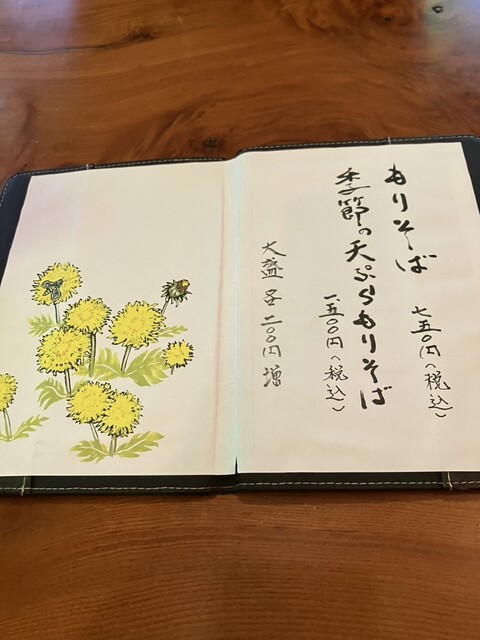 もりそば
七五〇円(税込)
季節の天ぷらもりそば
一、五〇〇円(税込)
大盛
二〇〇円増